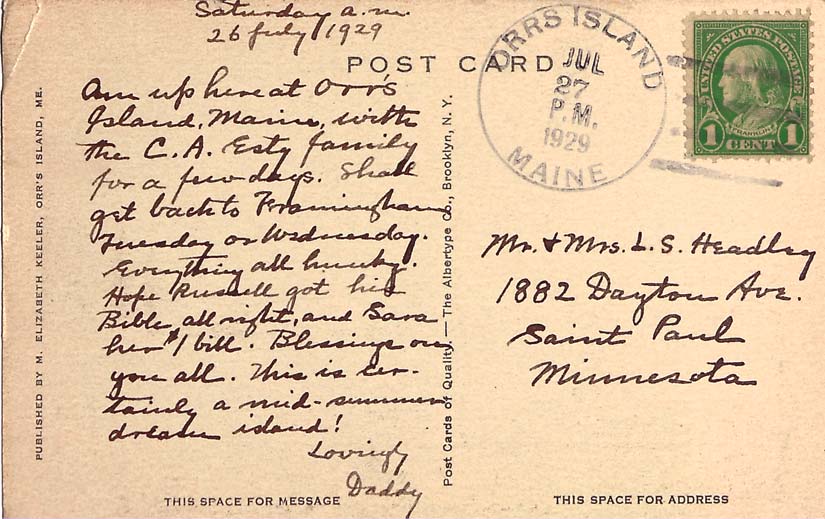 Saturday a.m.
26 July 1929
POST CARD
Am up here at Orr's
Island, Maine, with
the C. A. Esty family
for a few days. Shall
get back to Framingham
Tuesday or Wednesday.
Everything all hunky.
Hope Russell got his
Bible all right, and Sara
her $1 bill. Blessings on
you all. This is cer-
tainly a mid-summer
dream island!
Lovingly
Daddy
THIS SPACE FOR MESSAGE
PUBLISHED BY M. ELIZABETH KEELER, ORR'S ISLAND, ME.
Post Cards of Quality. — The Albertype Co., Brooklyn, N. Y.
ORRS ISLAND
JUL
27
P.M.
1929
MAINE
UNITED STATES POSTAGE
FRANKLIN
1 CENT 1
Mr. & Mrs. L. S. Headley
1882 Dayton Ave.
Saint Paul
Minnesota
THIS SPACE FOR ADDRESS